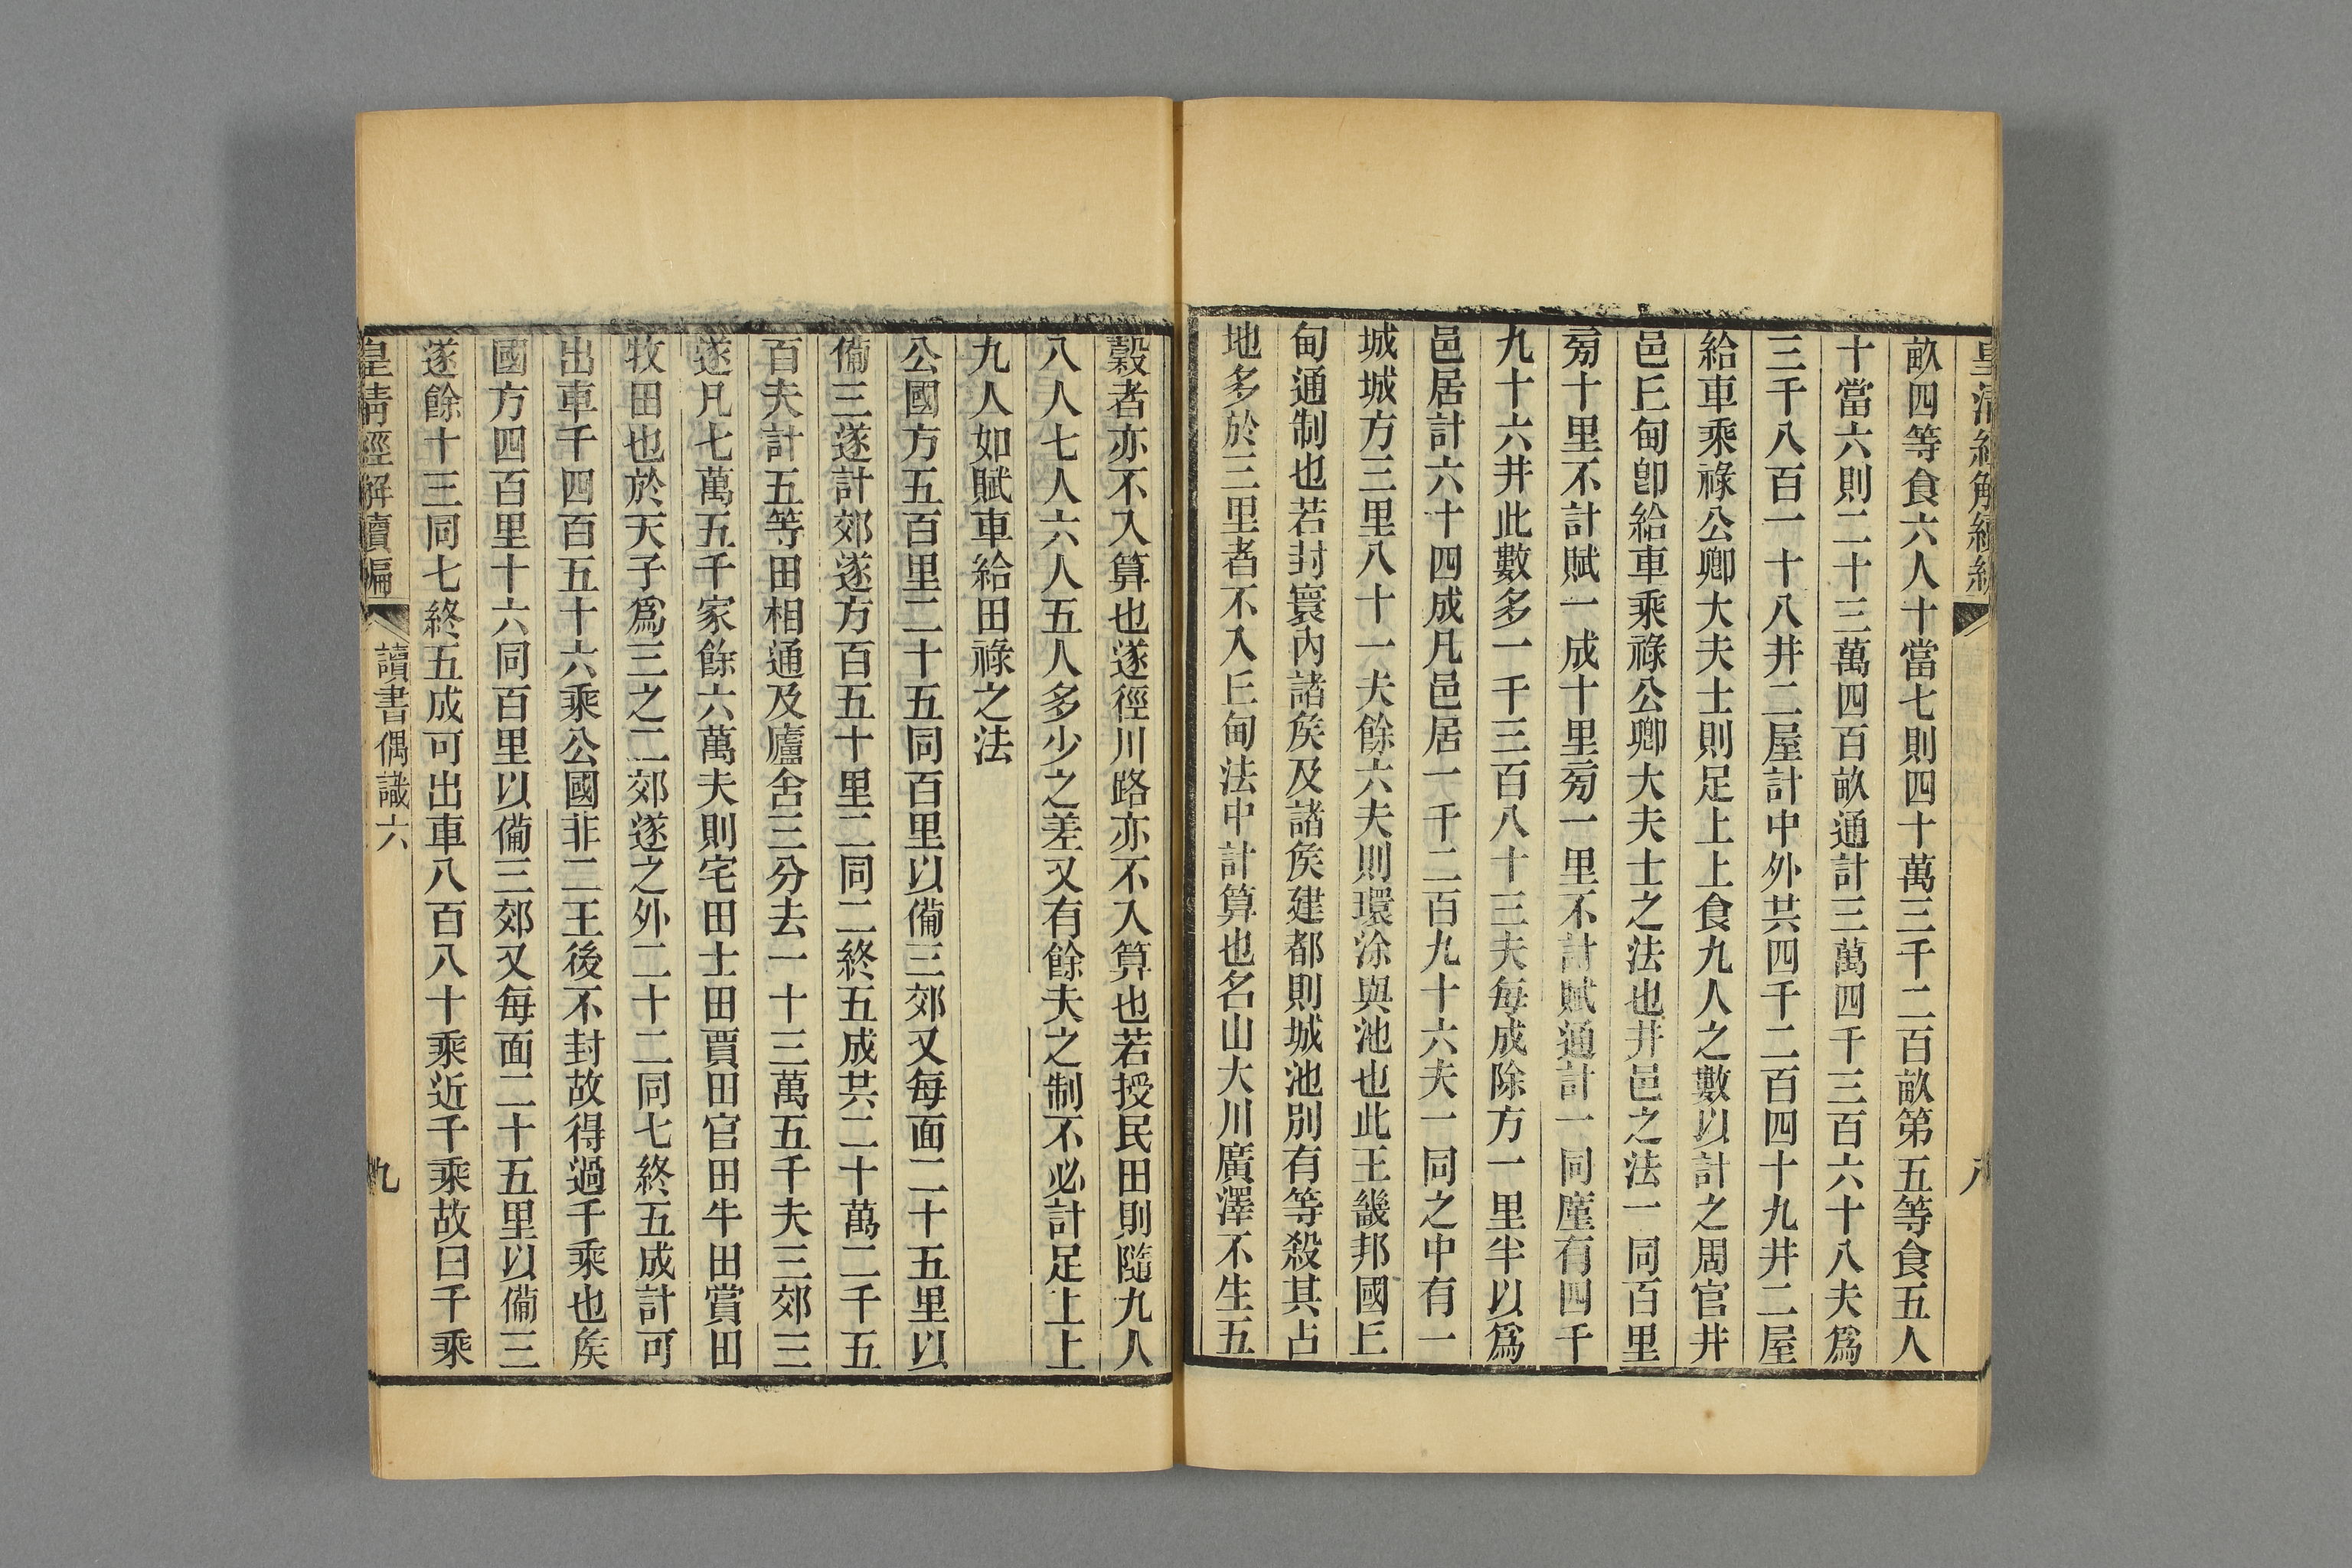 皇清經解續編
八
畝四等食六人十當七則四十萬三千二百畝第五等食五人
十當六則二十三萬四百畝通計三萬四千三百六十八夫爲
三千八百一十八井二屋計中外共四千二百四十九井二屋
給車乘祿公卿大夫士則足上上食九人之數以計之周官井
邑丘甸卽給車乘祿公卿大夫士之法也井邑之法一同百里
㫄十里不計賦一成十里㫄一里不計賦通計一同廑有四千
九十六井此數多一千三百八十三夫每成除方一里半以爲
邑居計六十四成凡邑居一千二百九十六夫一同之中有一
城城方三里八十一夫餘六夫則環涂與池也此王畿邦國丘
甸通制也若封寰內諸矦及諸矦建都則城池別有等殺其占
地多於三里者不入丘甸法中計算也名山大川廣澤不生五
穀者亦不入算也遂徑川路亦不入算也若授民田則隨九人
八人七人六人五人多少之差又有餘夫之制不必計足上上
九人如賦車給田祿之法
公國方五百里二十五同百里以備三郊又每面二十五里以
備三遂計郊遂方百五十里二同二終五成共二十萬二千五
百夫計五等田相通及廬舍三分去一十三萬五千夫三郊三
遂凡七萬五千家餘六萬夫則宅田士田賈田官田牛田賞田
牧田也於天子爲三之二郊遂之外二十二同七終五成計可
出車千四百五十六乘公國非二王後不封故得過千乘也矦
國方四百里十六同百里以備三郊又每面二十五里以備三
遂餘十三同七終五成可出車八百八十乘近千乘故曰千乘
皇清經解續編
讀書偶識六
九